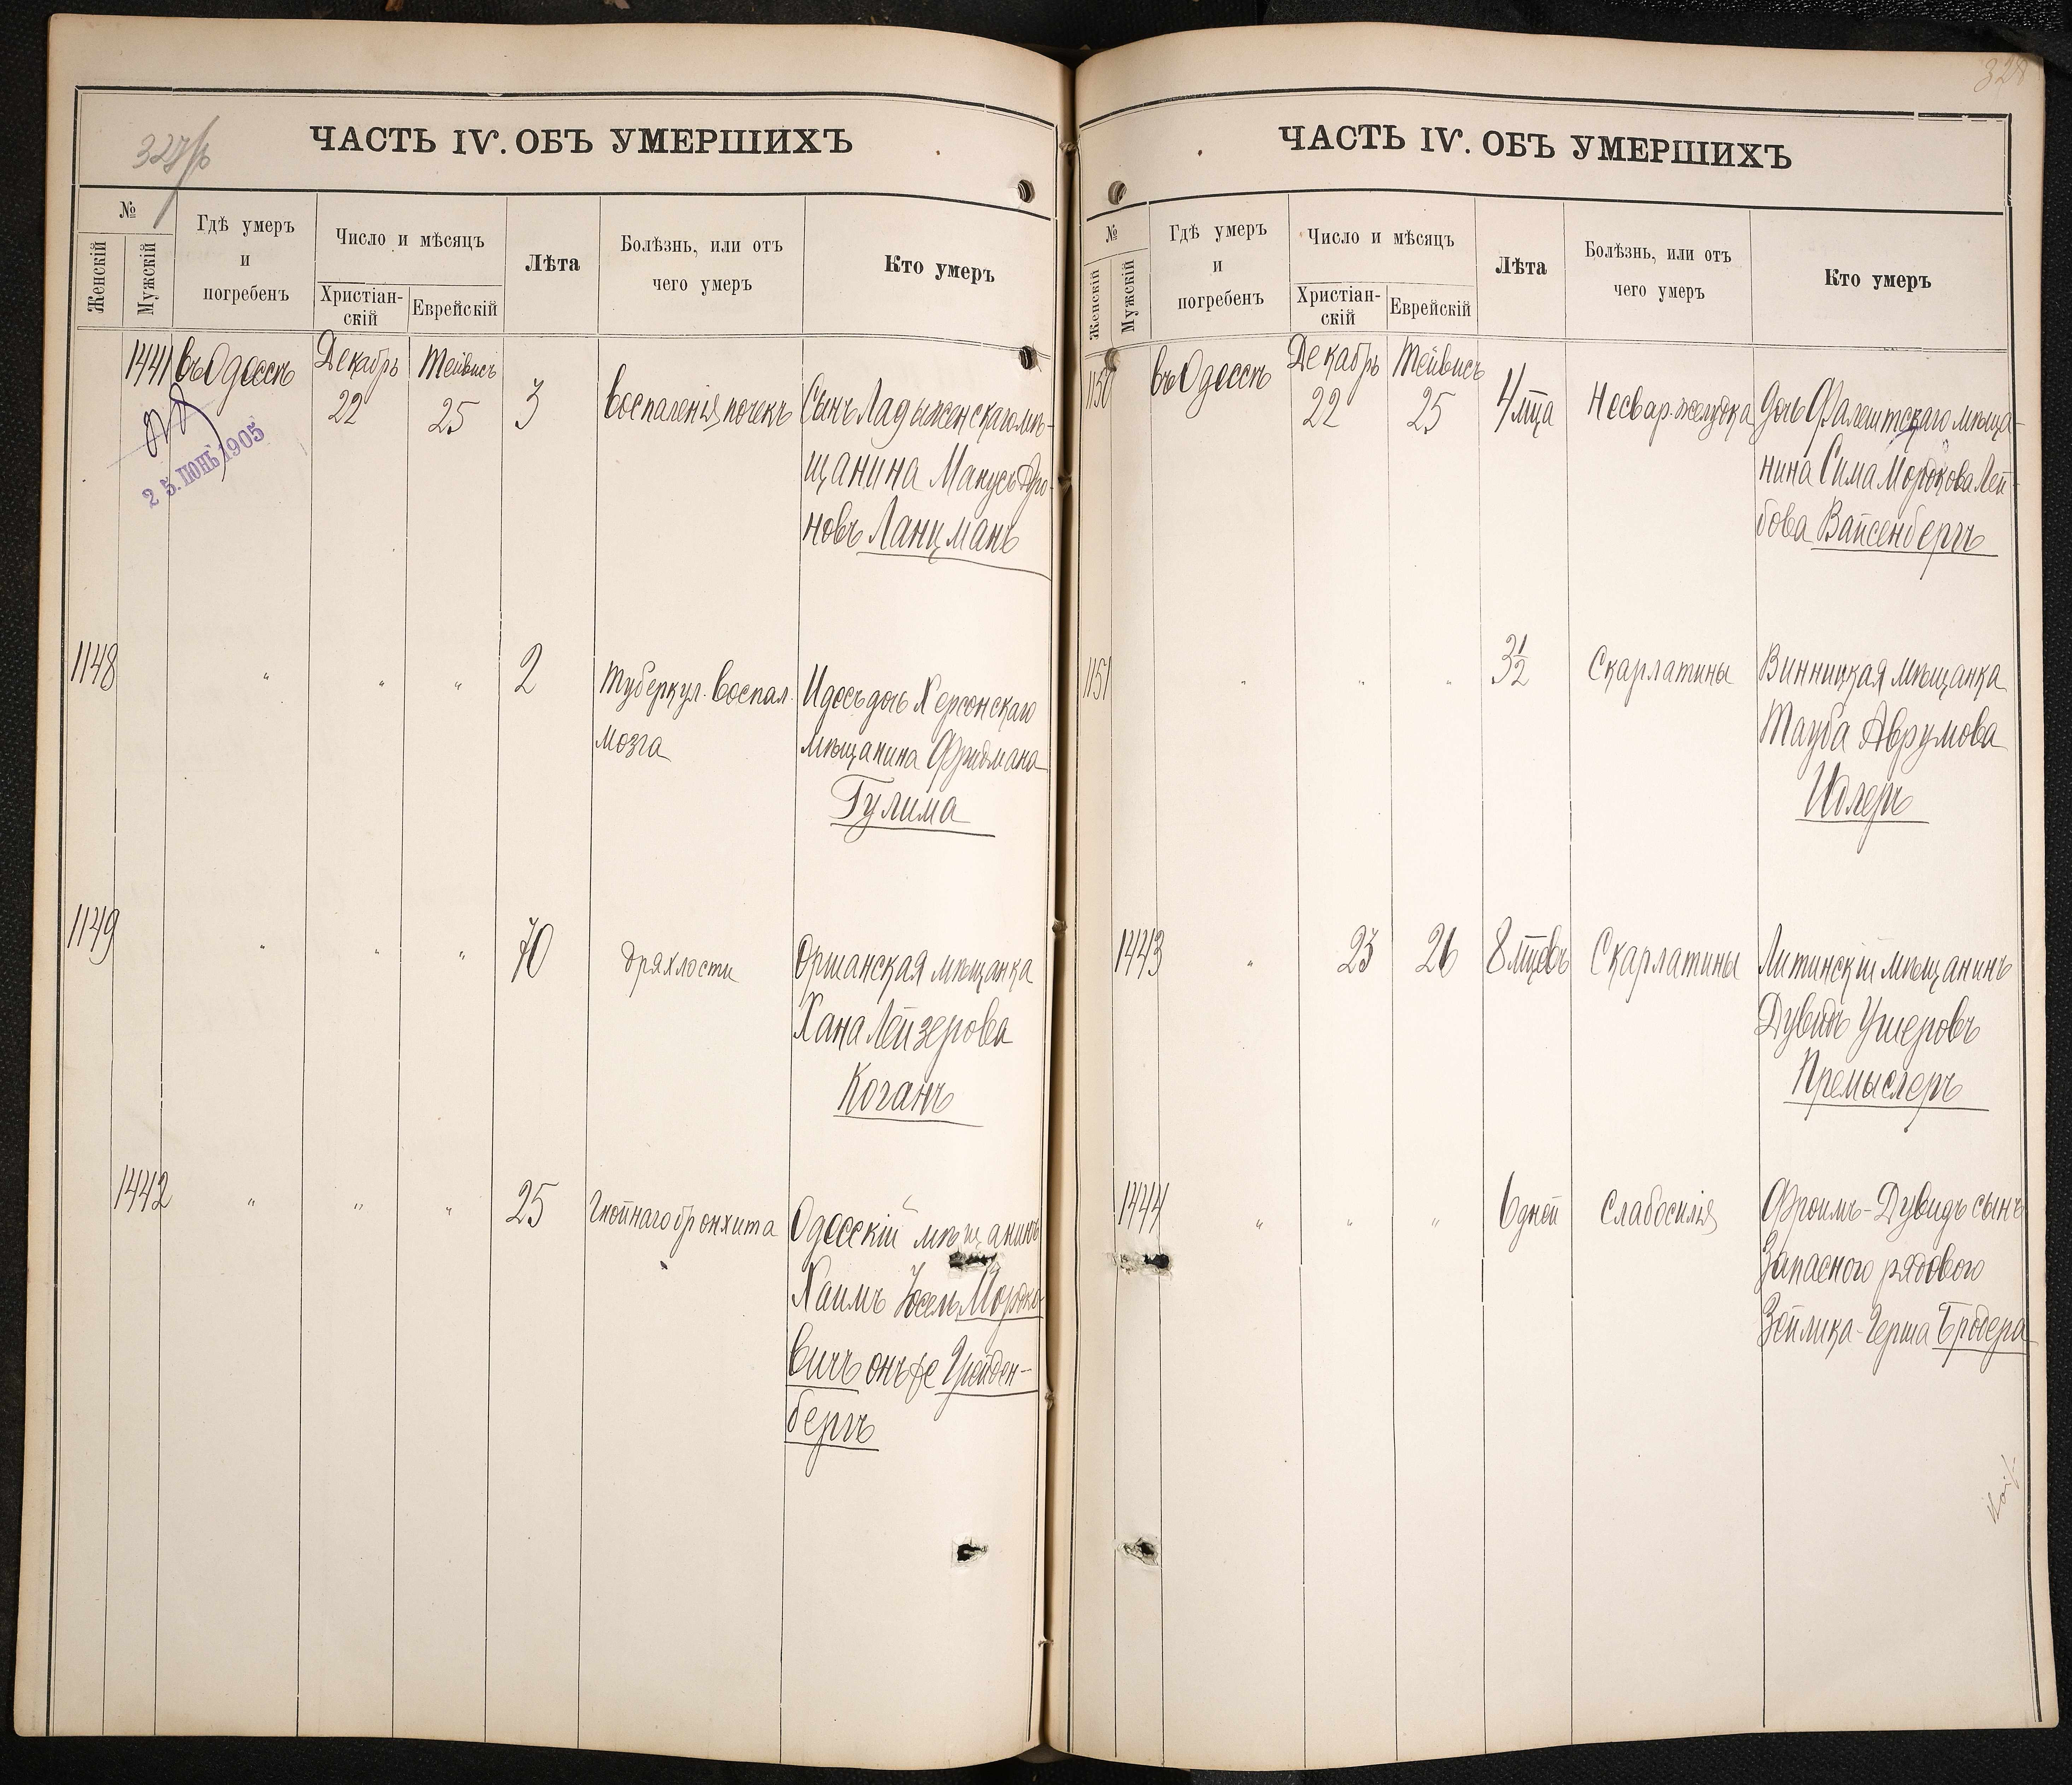 327/об
ЧАСТЬ IV. ОБЪ УМЕРШИХЪ
№
Женскій
Мужскій
Гдѣ умеръ
и
погребенъ
Число и мѣсяцъ
Христіан-
скій
Еврейскій
Лѣта
Болѣзнь, или отъ
чего умеръ
Кто умеръ
1441
въ Одессѣ
Декабрь
22
Тейвисъ
25
3
воспаленія почекъ
Сынъ Ладыженскаго мѣ-
щанина Манусъ Аро-
новъ Ланцманъ
25. ІЮНЬ 1905
1148
"
"
"
2
Туберкул. воспал.
мозга
Идесъ дочь Херсонскаго
мѣщанина Фридмана
Гулима
1149
"
"
"
70
дряхлости
Оршанская мѣщанка
Хана Лейзерова
Коганъ
1442
"
"
"
25
Гнойнаго бронхита
Одесскій мѣщанинъ
Хаимъ Іосель Мордко-
вичъ онъ же Грейден-
бергъ
328
ЧАСТЬ IV. ОБЪ УМЕРШИХЪ
№
Женскій
Мужскій
Гдѣ умеръ
и
погребенъ
Число и мѣсяцъ
Христіан-
скій
Еврейскій
Лѣта
Болѣзнь, или отъ
чего умеръ
Кто умеръ
1150
въ Одессѣ
Декабрь
22
Тейвисъ
25
4 мца
Несвар. желудка
дочь Фалештскаго мѣща-
нина Сима Мордкова Лей-
бова Вайсенбергъ
1151
"
"
"
3 1/2
Скарлатины
Винницкая мѣщанка
Тауба Аврумова
Идлеръ
1443
"
23
26
8 мцевъ
Скарлатины
Литинскій мѣщанинъ
Дувидъ Ушеровъ
Премыслеръ
1444
"
"
"
6 дней
Слабосилія
Фроимъ-Дувидъ сынъ
Запасного рядового
Зейлика-Герша Бродера